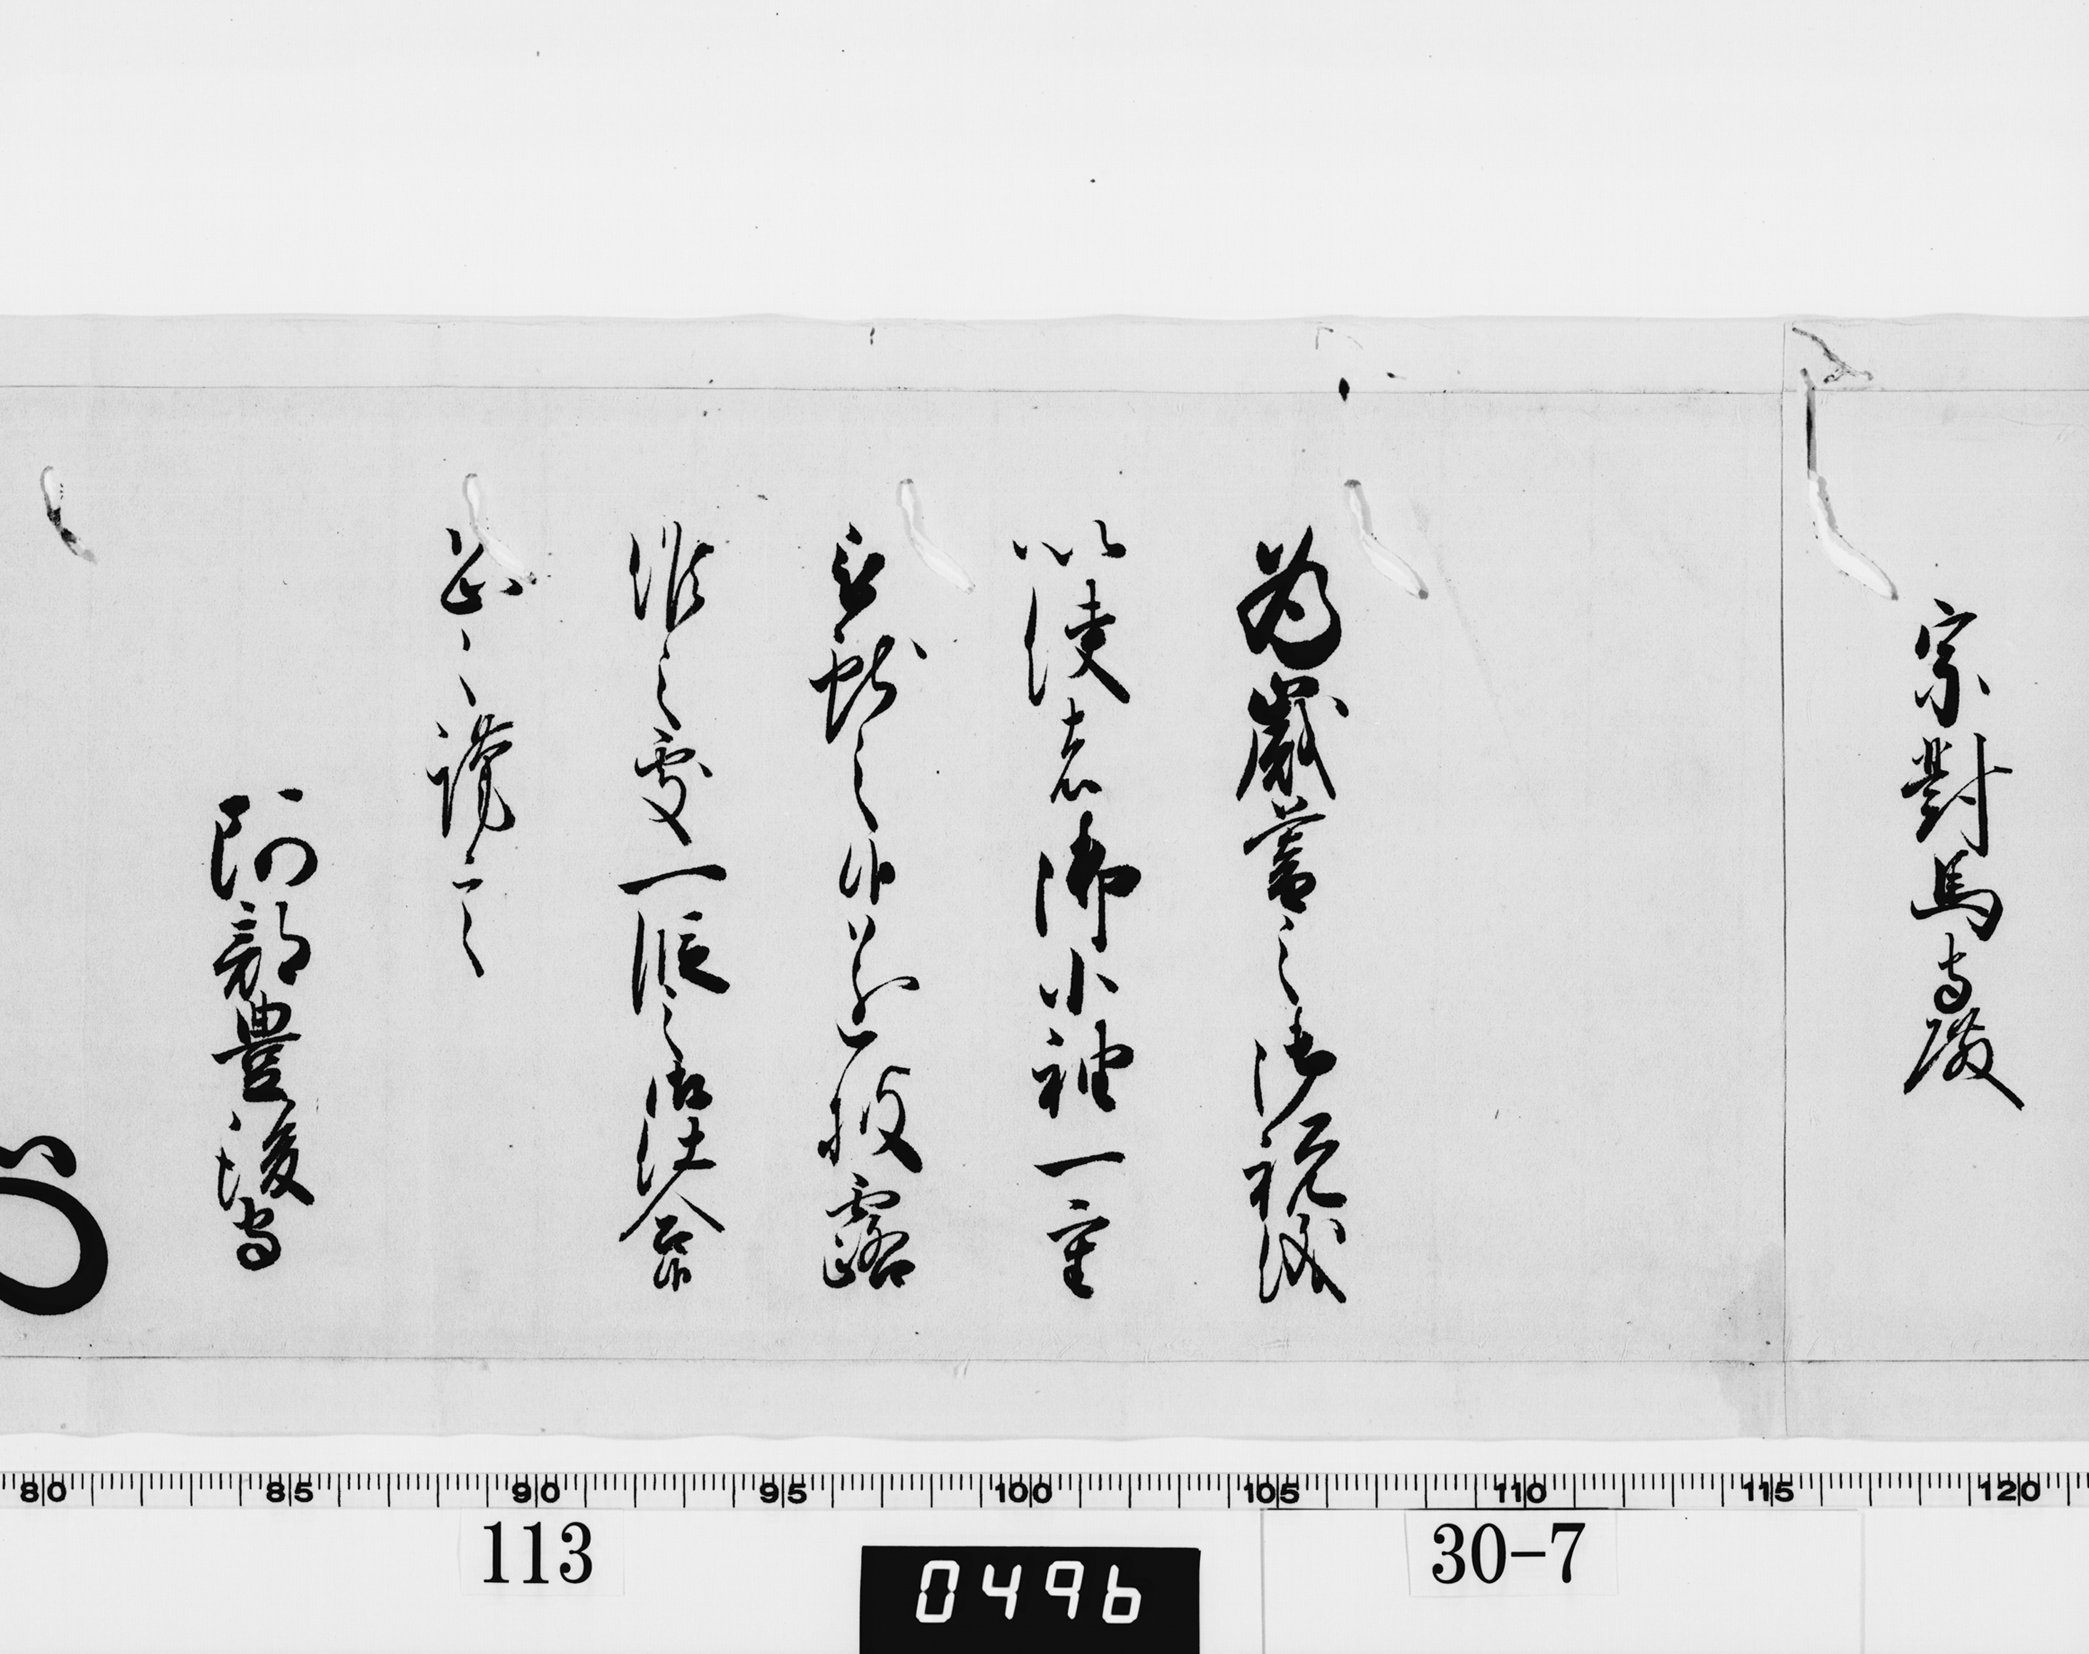 宗對馬守殿
為歳暮之御祝儀
以使者御小袖一重
献之候遂披露
候之處一段之御仕合候
恐々謹言
阿部豊後守
80 85 90 95 100 105 110 115 120
113
0496
30-7